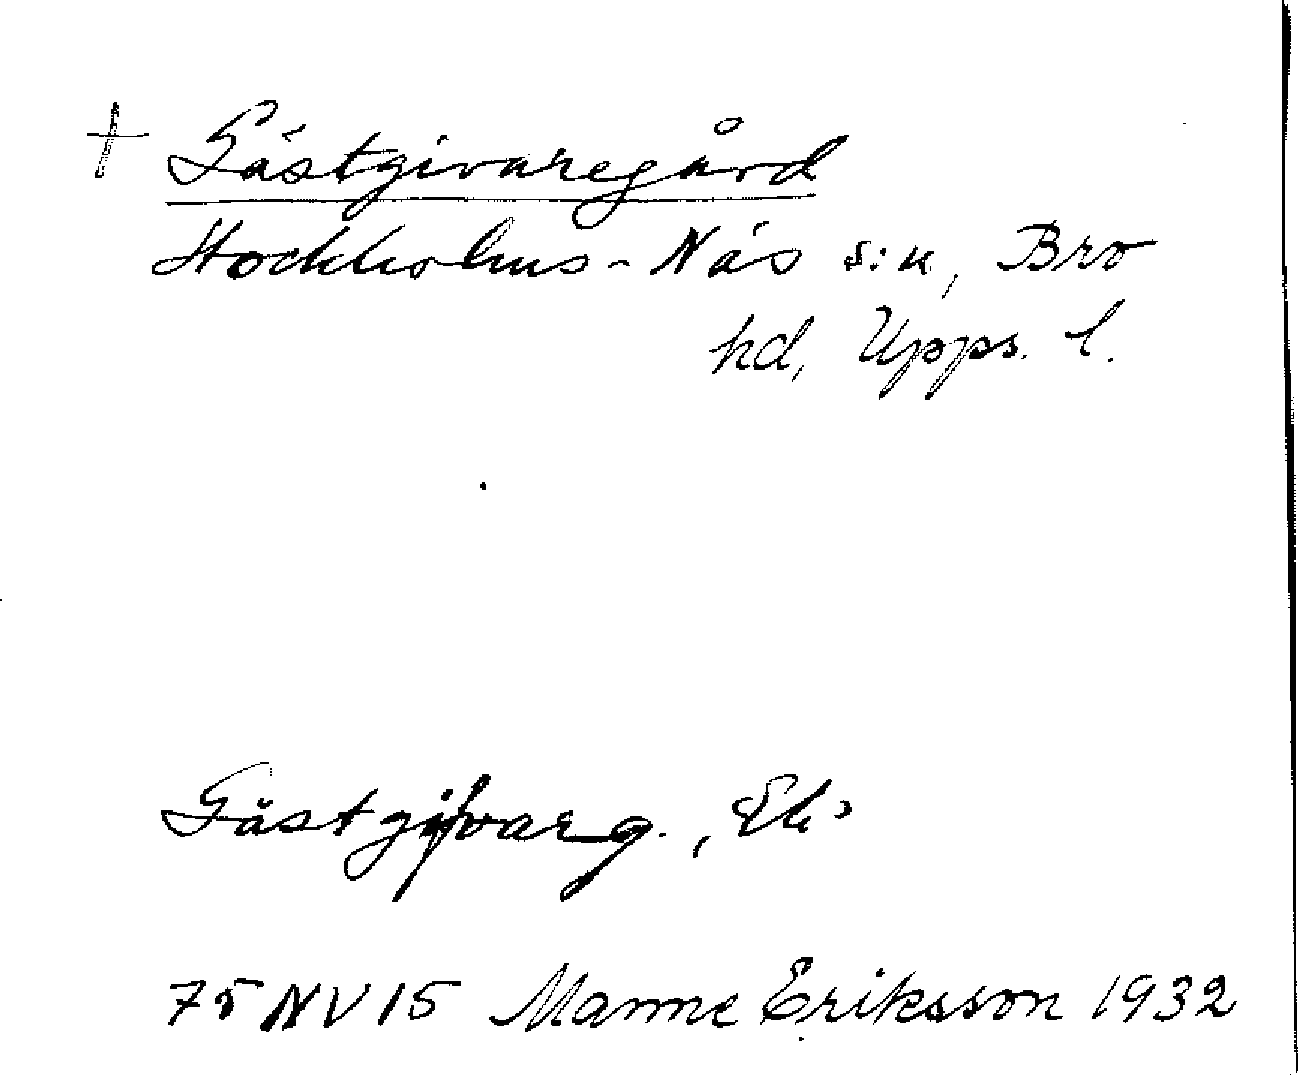 + Gästgivaregård
Stockholms-Näs s:n, Bro
hd, Upps. l.
Gästgifvarg., Ek.
75 NV 15 Manne Eriksson 1932